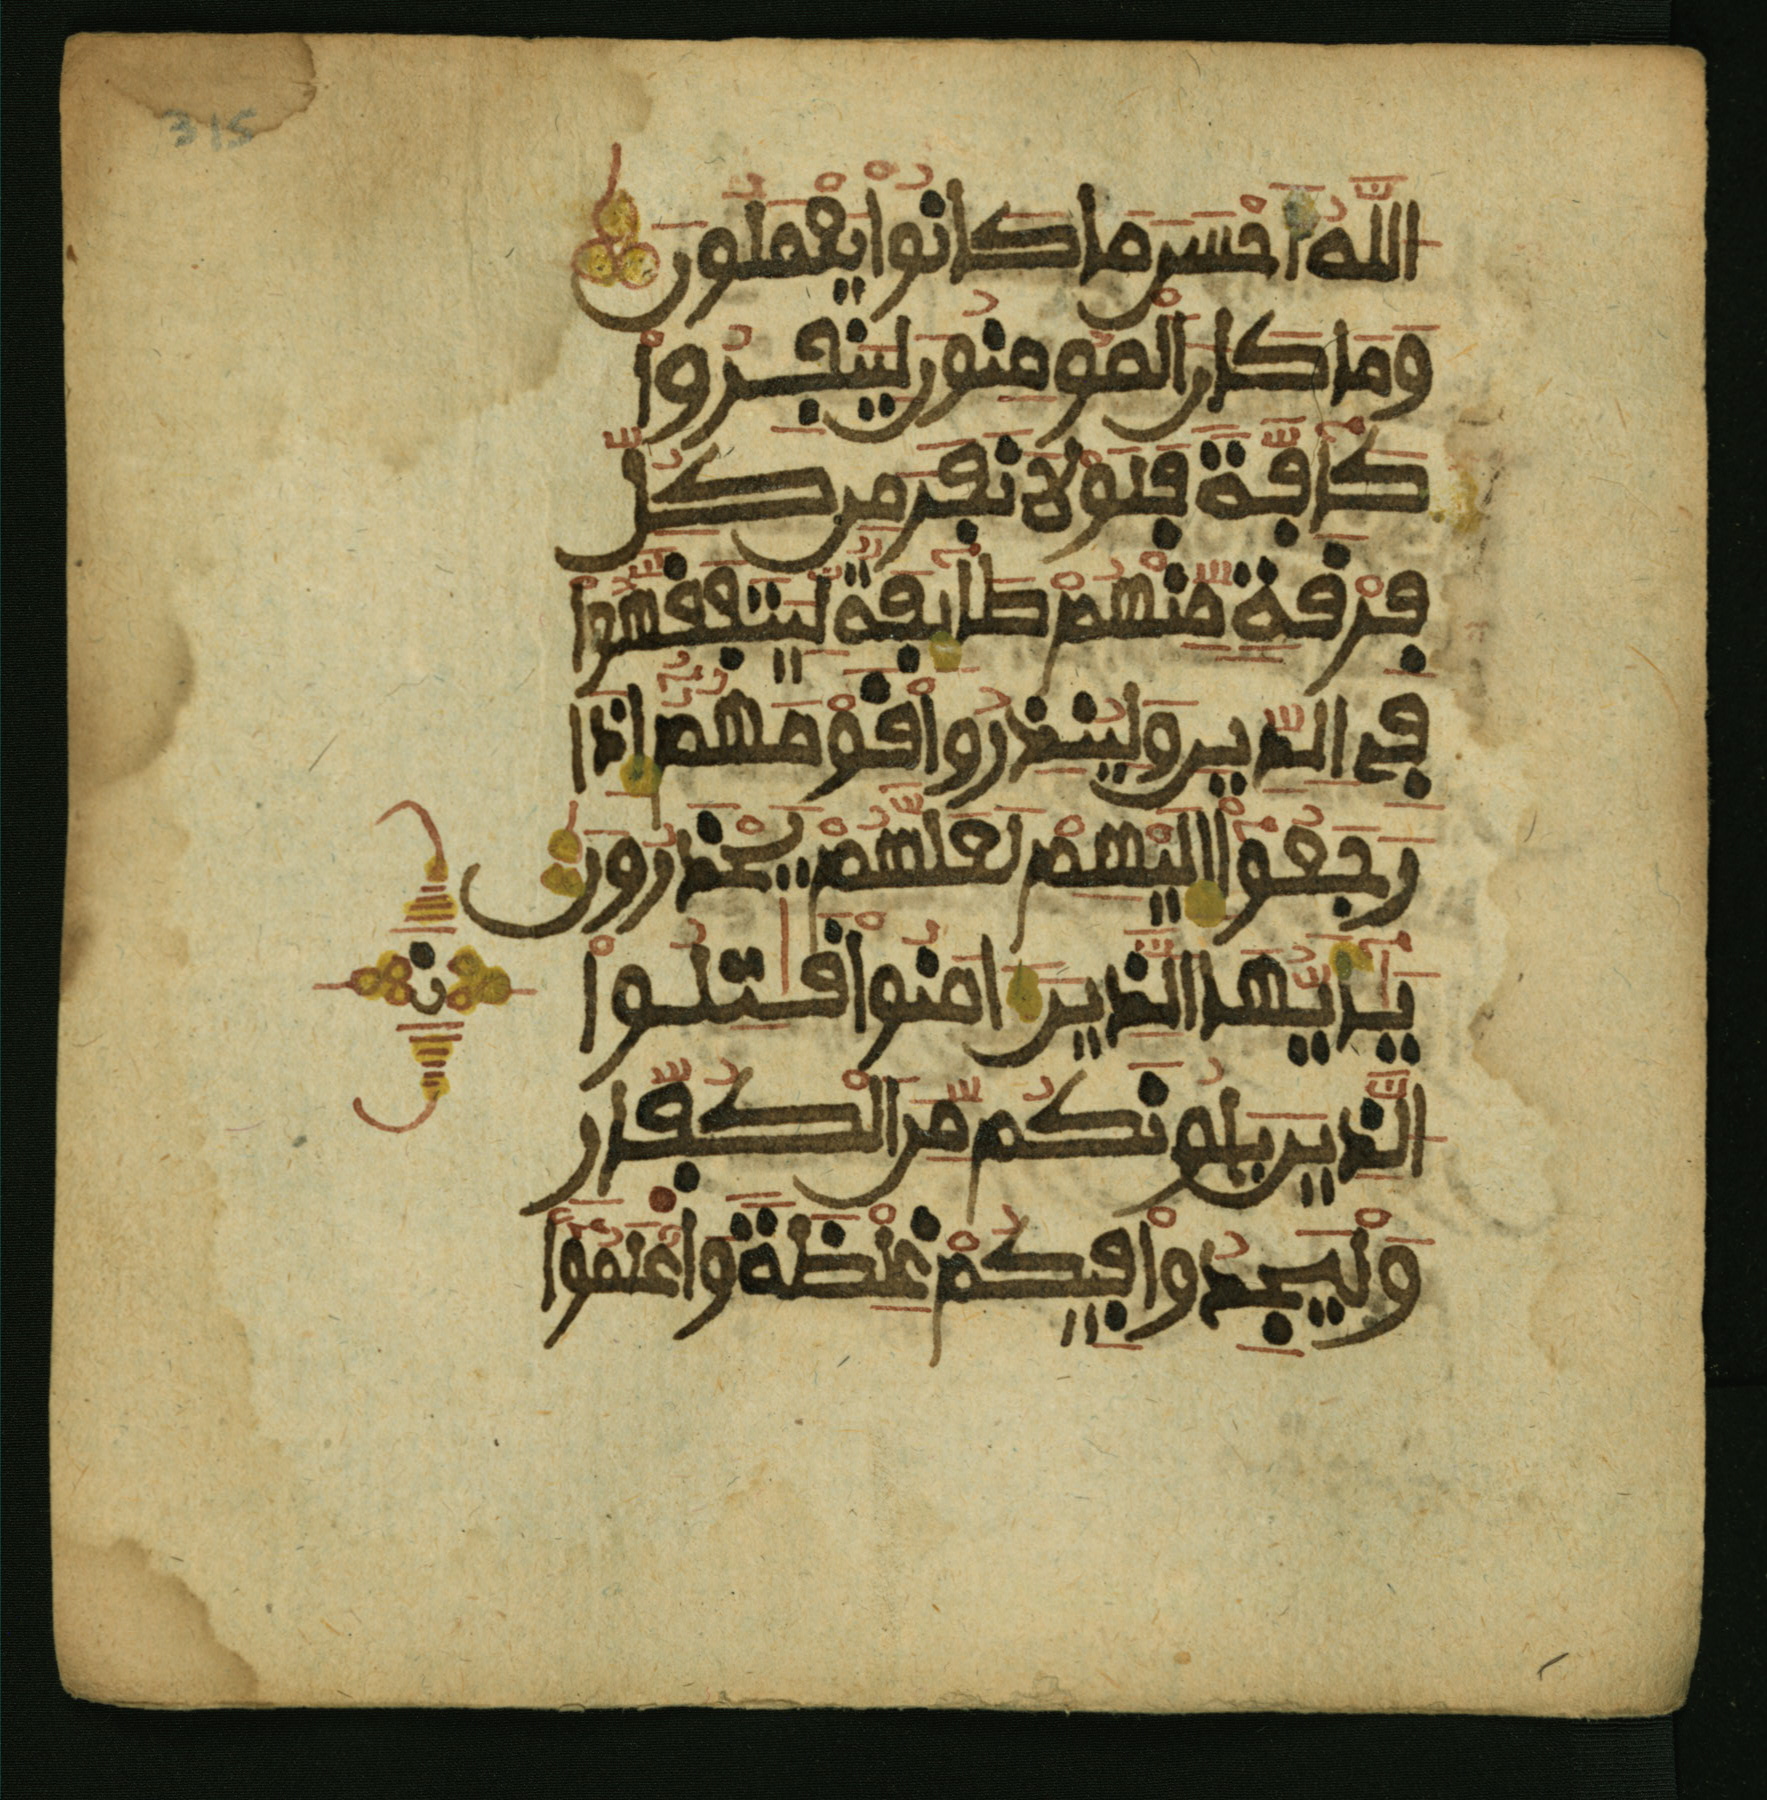 315
اللَّهُ أَحْسَنَ مَا كَانُوا يَعْمَلُونَ
وَمَا كَانَ الْمُومِنُونَ لِيَنفِرُوا
كَآفَّةً فَلَوْلَا نَفَرَ مِن كُلِّ
فِرْقَةٍ مِّنْهُمْ طَآيِفَةٌ لِّيَتَفَقَّهُوا
فِي الدِّينِ وَلِيُنذِرُوا قَوْمَهُمُ إِذَا
رَجَعُوٓا إِلَيْهِمْ لَعَلَّهُمْ يَحْذَرُونَ
يَٰٓأَيُّهَا الَّذِينَ ءَامَنُوا قَٰتِلُوا
ن
الَّذِينَ يَلُونَكُم مِّنَ الْكُفَّارِ
وَلْيَجِدُوا فِيكُمْ غِلْظَةً وَاعْلَمُوٓا